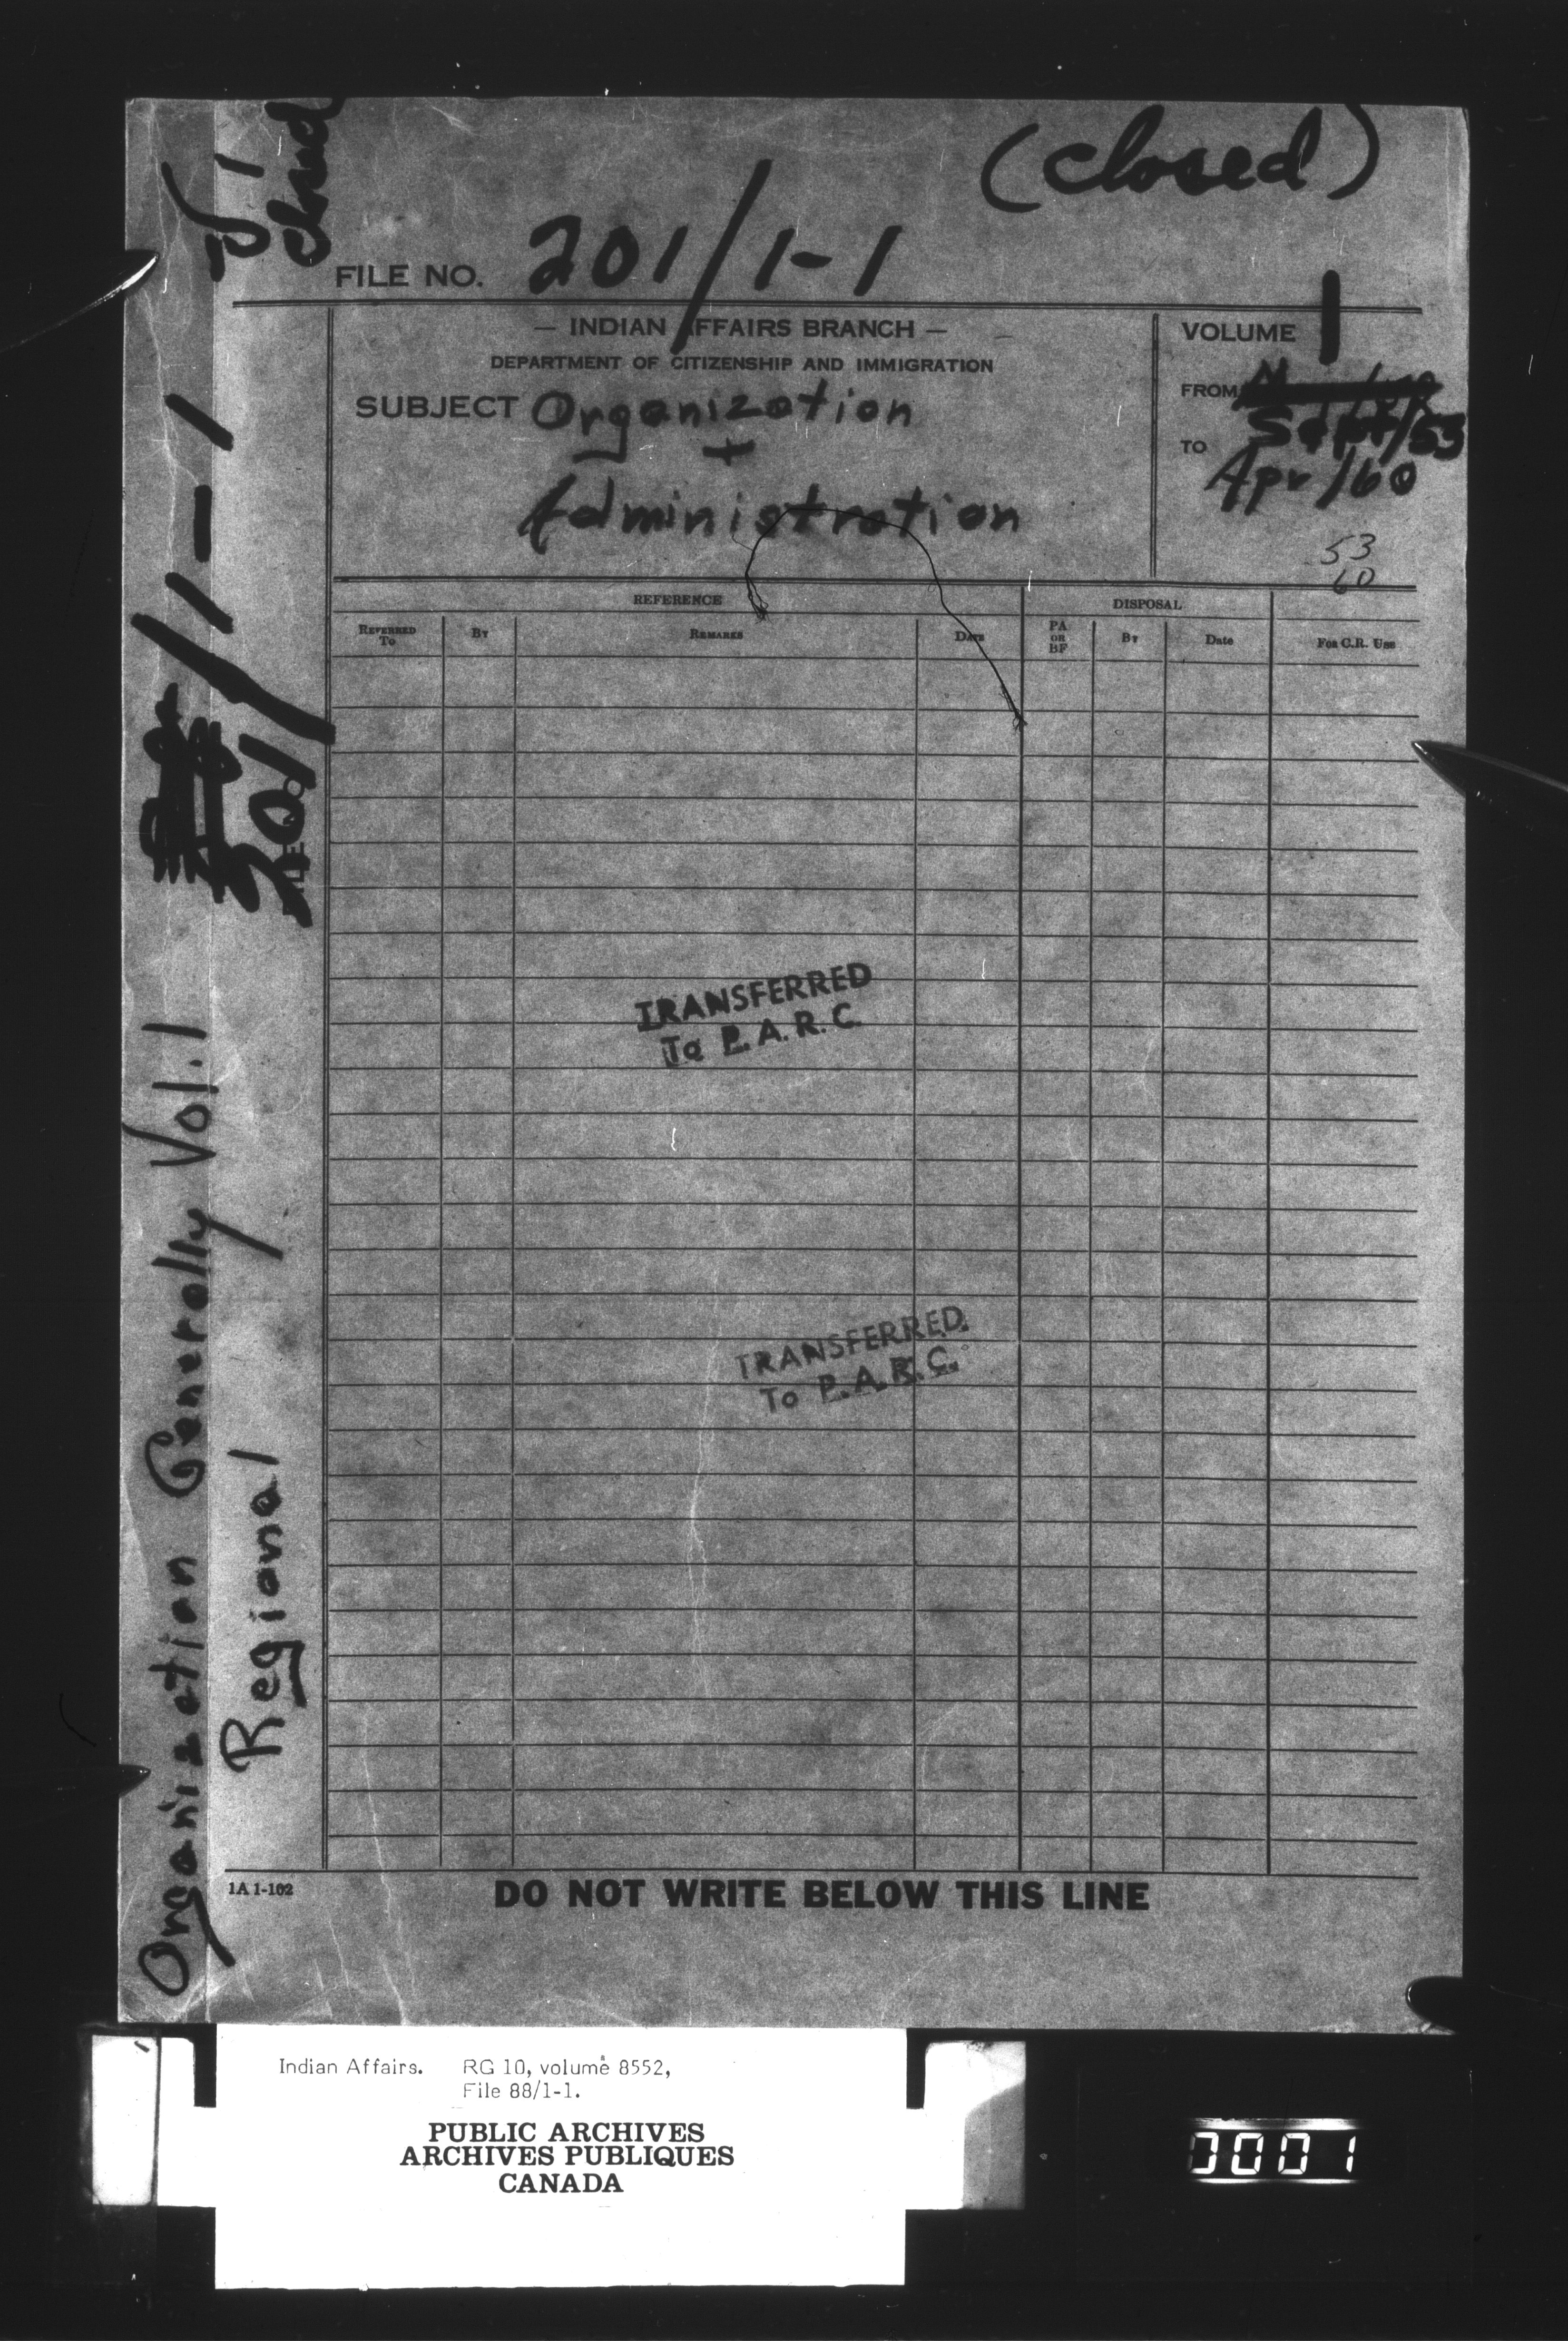 (closed)
FILE NO. 201/1-1
— INDIAN AFFAIRS BRANCH —
DEPARTMENT OF CITIZENSHIP AND IMMIGRATION
SUBJECT Organization
+
Administration
VOLUME 1
FROM
Sept/53
TO
Apr/60
53
60
REFERENCE
DISPOSAL
REFERRED TO
BY
REMARKS
DATE
PA OR BF
BY
Date
FOR C.R. USE
TRANSFERRED
To P.A.R.C.
TRANSFERRED
To P.A.R.C.
V 1
closed
201/1-1
Organization Generally Vol. 1
Regional
1A 1-102
DO NOT WRITE BELOW THIS LINE
Indian Affairs. RG 10, volume 8552,
File 88/1-1.
PUBLIC ARCHIVES
ARCHIVES PUBLIQUES
CANADA
0001